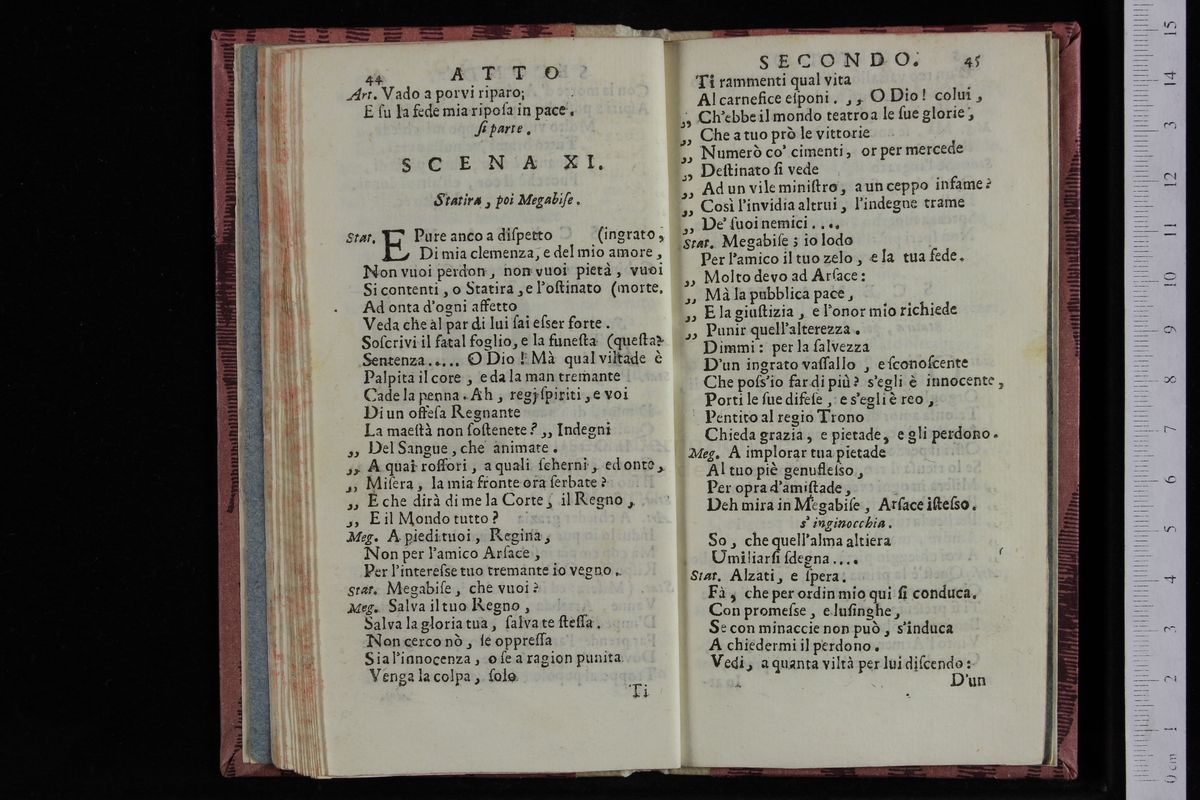 44 ATTO
Art. Vado a porvi riparo;
E ſu la fede mia ripoſa in pace.
ſi parte.
SCENA XI.
Statira, poi Megabiſe.
Stat. E Pure anco a diſpetto (ingrato,
Di mia clemenza, e del mio amore,
Non vuoi perdon, non vuoi pietà, vuoi
Si contenti, o Statira, e l'oſtinato (morte.
Ad onta d'ogni affetto
Veda che al par di lui ſai eſser forte.
Soſcrivi il fatal foglio, e la funeſta (queſta?
Sentenza..... O Dio! Mà qual viltade è
Palpita il core, e da la man tremante
Cade la penna. Ah, regj ſpiriti, e voi
Di un offeſa Regnante
La maeſtà non ſoſtenete? ,, Indegni
,, Del Sangue, che animate.
,, A quai roſſori, a quali ſcherni, ed onte,
,, Miſera, la mia fronte ora ſerbate?
,, E che dirà di me la Corte, il Regno,
,, E il Mondo tutto?
Meg. A piedi tuoi, Regina,
Non per l'amico Arſace,
Per l'intereſse tuo tremante io vegno.
Stat. Megabiſe, che vuoi?
Meg. Salva il tuo Regno,
Salva la gloria tua, ſalva te ſteſſa.
Non cerco nò, ſe oppreſſa
Sia l'innocenza, o ſe a ragion punita
Venga la colpa, ſolo
Ti
SECONDO. 45
Ti rammenti qual vita
Al carnefice eſponi. ,, O Dio! colui,
,, Ch'ebbe il mondo teatro a le ſue glorie,
,, Che a tuo prò le vittorie
,, Numerò co' cimenti, or per mercede
,, Deſtinato ſi vede
,, Ad un vile miniſtro, a un ceppo infame?
,, Così l'invidia altrui, l'indegne trame
,, De' ſuoi nemici....
Stat. Megabiſe; io lodo
Per l'amico il tuo zelo, e la tua fede.
,, Molto devo ad Arſace:
,, Mà la pubblica pace,
,, E la giuſtizia, e l'onor mio richiede
,, Punir quell'alterezza.
Dimmi: per la ſalvezza
D'un ingrato vaſſallo, e ſconoſcente
Che poſs'io far di più? s'egli è innocente,
Porti le ſue difeſe, e s'egli è reo,
Pentito al regio Trono
Chieda grazia, e pietade, e gli perdono.
Meg. A implorar tua pietade
Al tuo piè genufleſso,
Per opra d'amiſtade,
Deh mira in Megabiſe, Arſace iſteſso.
s'inginocchia.
So, che quell'alma altiera
Umiliarſi ſdegna....
Stat. Alzati, e ſpera.
Fà, che per ordin mio qui ſi conduca.
Con promeſse, e luſinghe,
Se con minaccie non può, s'induca
A chiedermi il perdono.
Vedi, a quanta viltà per lui diſcendo:
D'un
0 cm 1 2 3 4 5 6 7 8 9 10 11 12 3 14 15